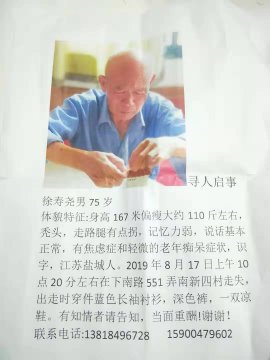 寻人启事
徐寿尧男 75 岁
体貌特征:身高 167 米偏瘦大约 110 斤左右,
秃头，走路腿有点拐，记忆力弱，说话基本
正常，有焦虑症和轻微的老年痴呆症状，识
字，江苏盐城人。2019 年 8 月 17 日上午 10
点 20 分左右在下南路 551 弄南新四村走失，
出走时穿件蓝色长袖衬衫，深色裤，一双凉
鞋。有知情者请告知，当面重酬!谢谢!
联系电话:13818496728 15900479602